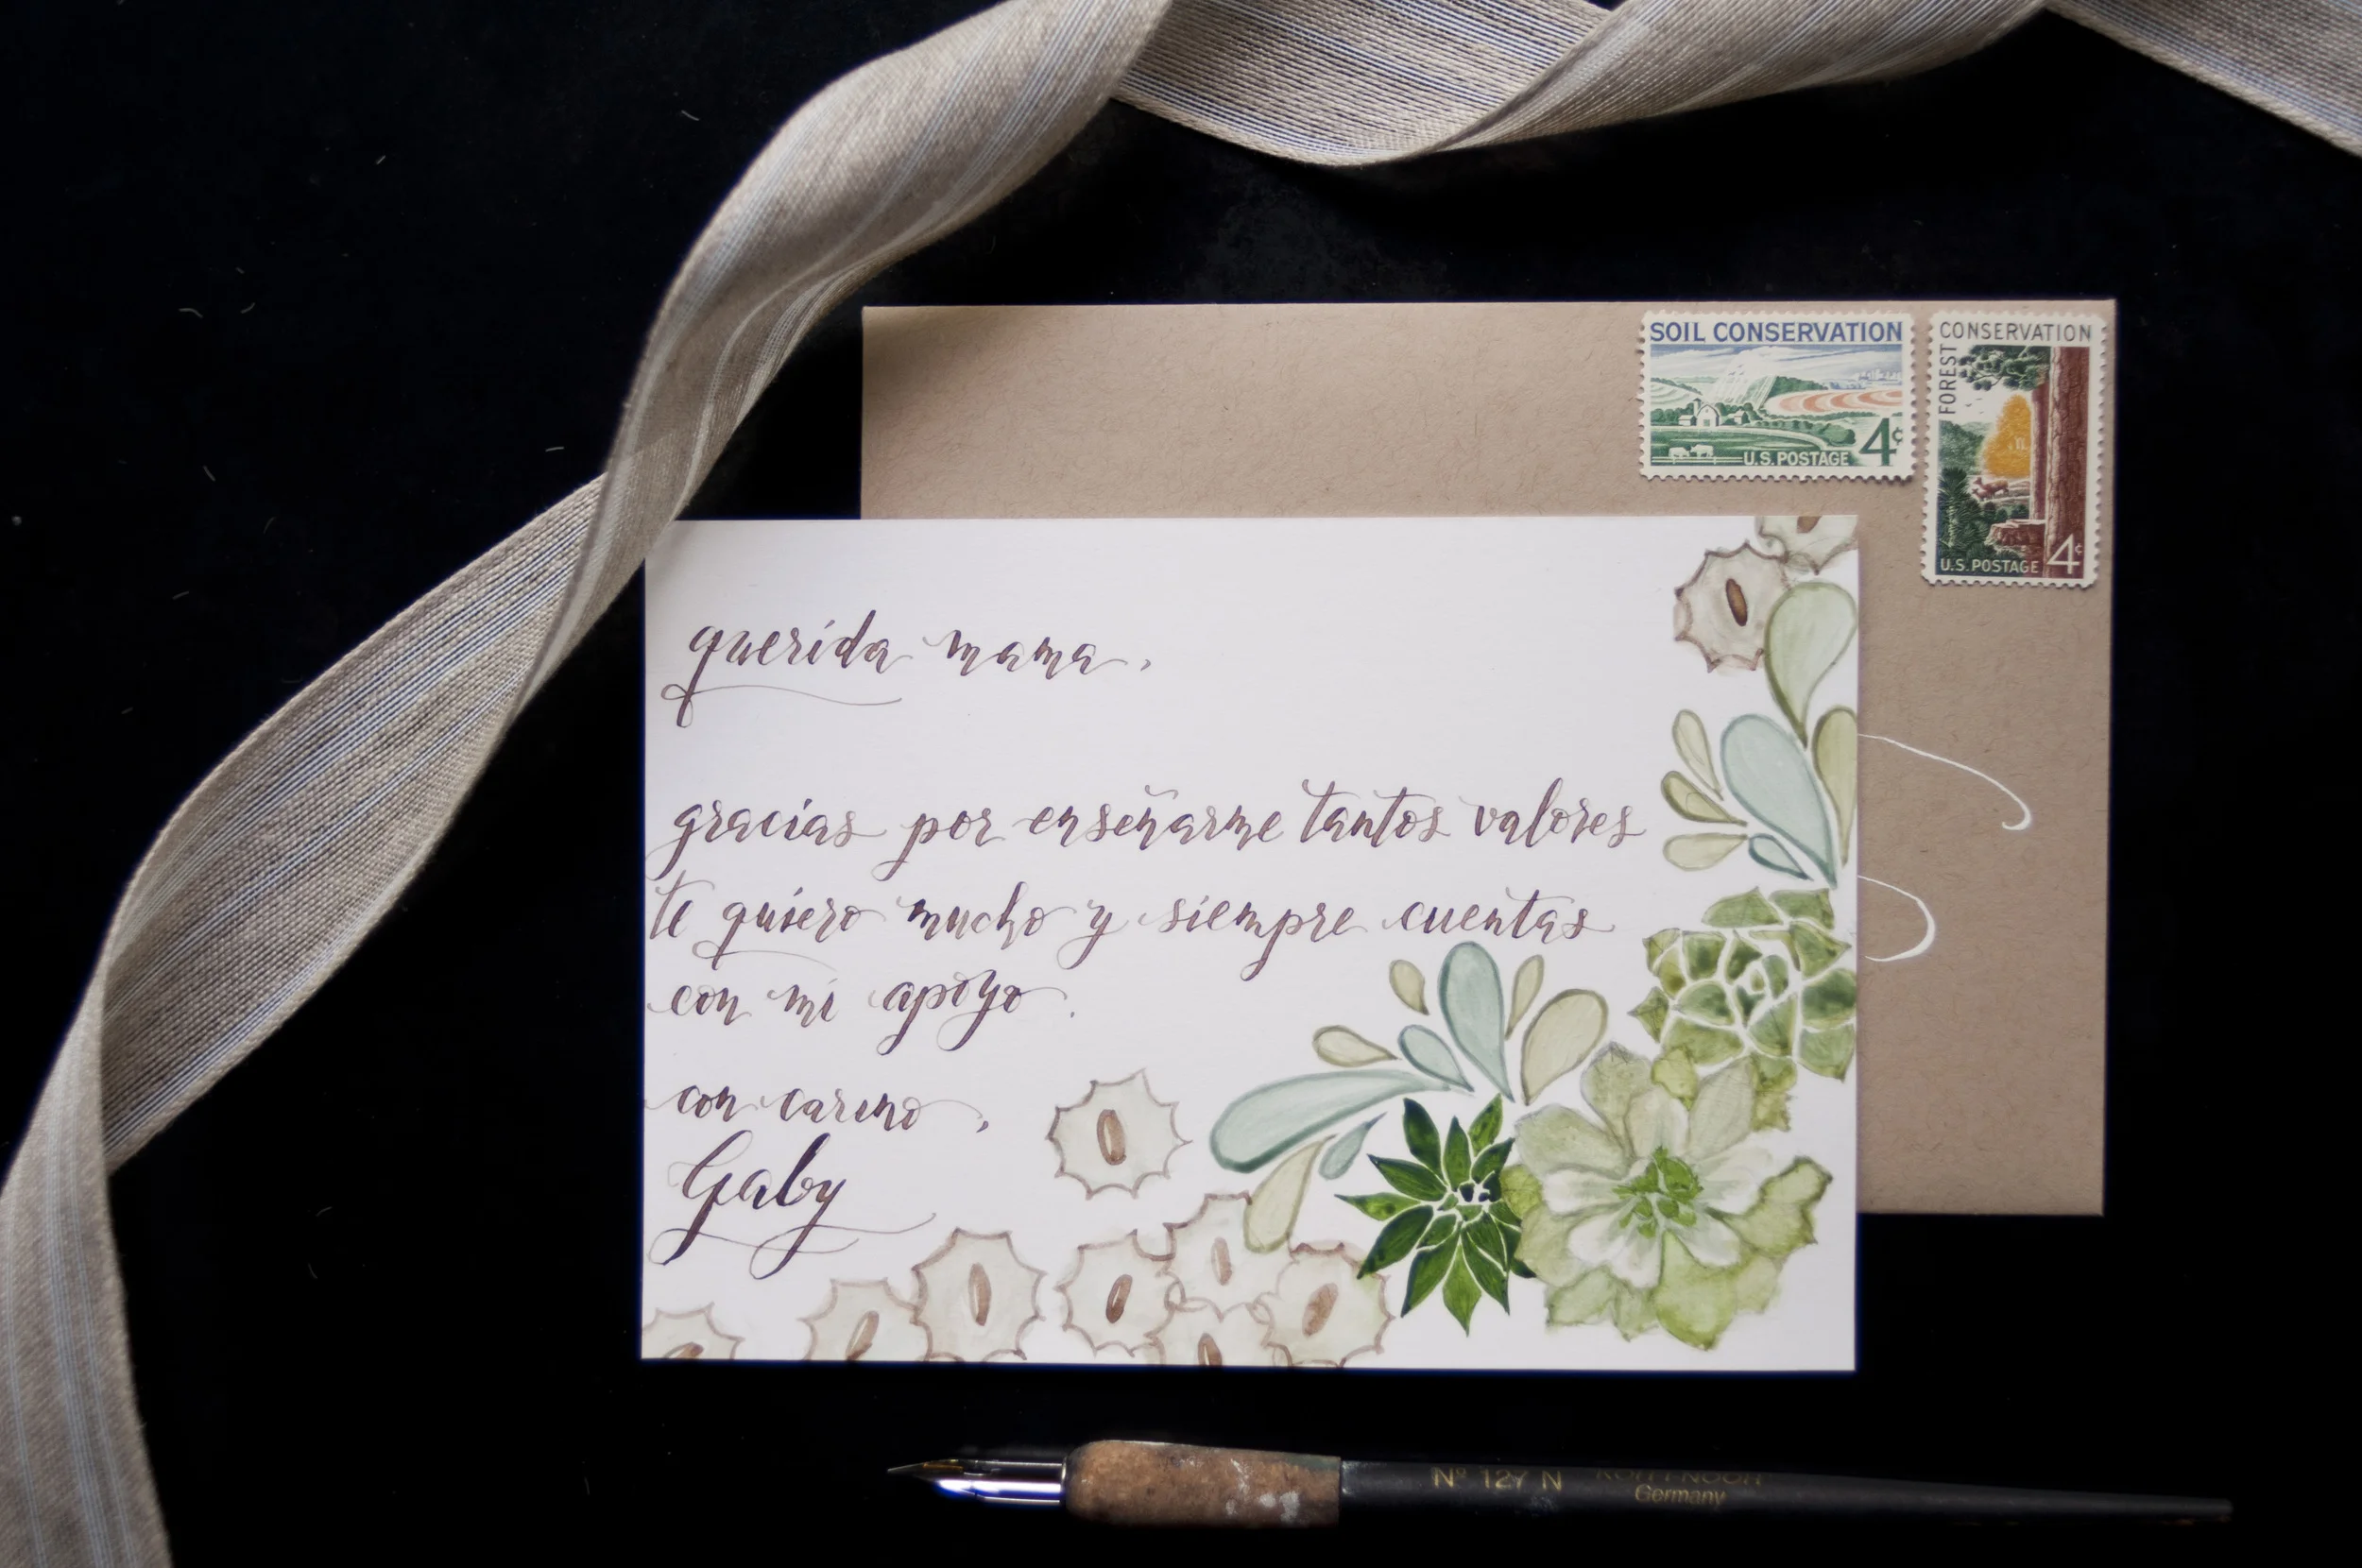 SOIL CONSERVATION
4¢
U.S. POSTAGE
FOREST CONSERVATION
U.S. POSTAGE 4¢
querida mama,
gracias por enseñarme tantos valores
te quiero mucho y siempre cuentas
con mi apoyo.
con carino,
Gaby
Nº 127 N KOH-I-NOOR
Germany